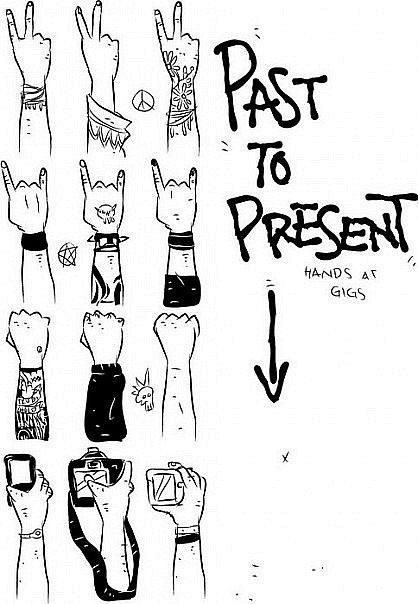 PAST
TO
PRESENT
HANDS AT
GIGS